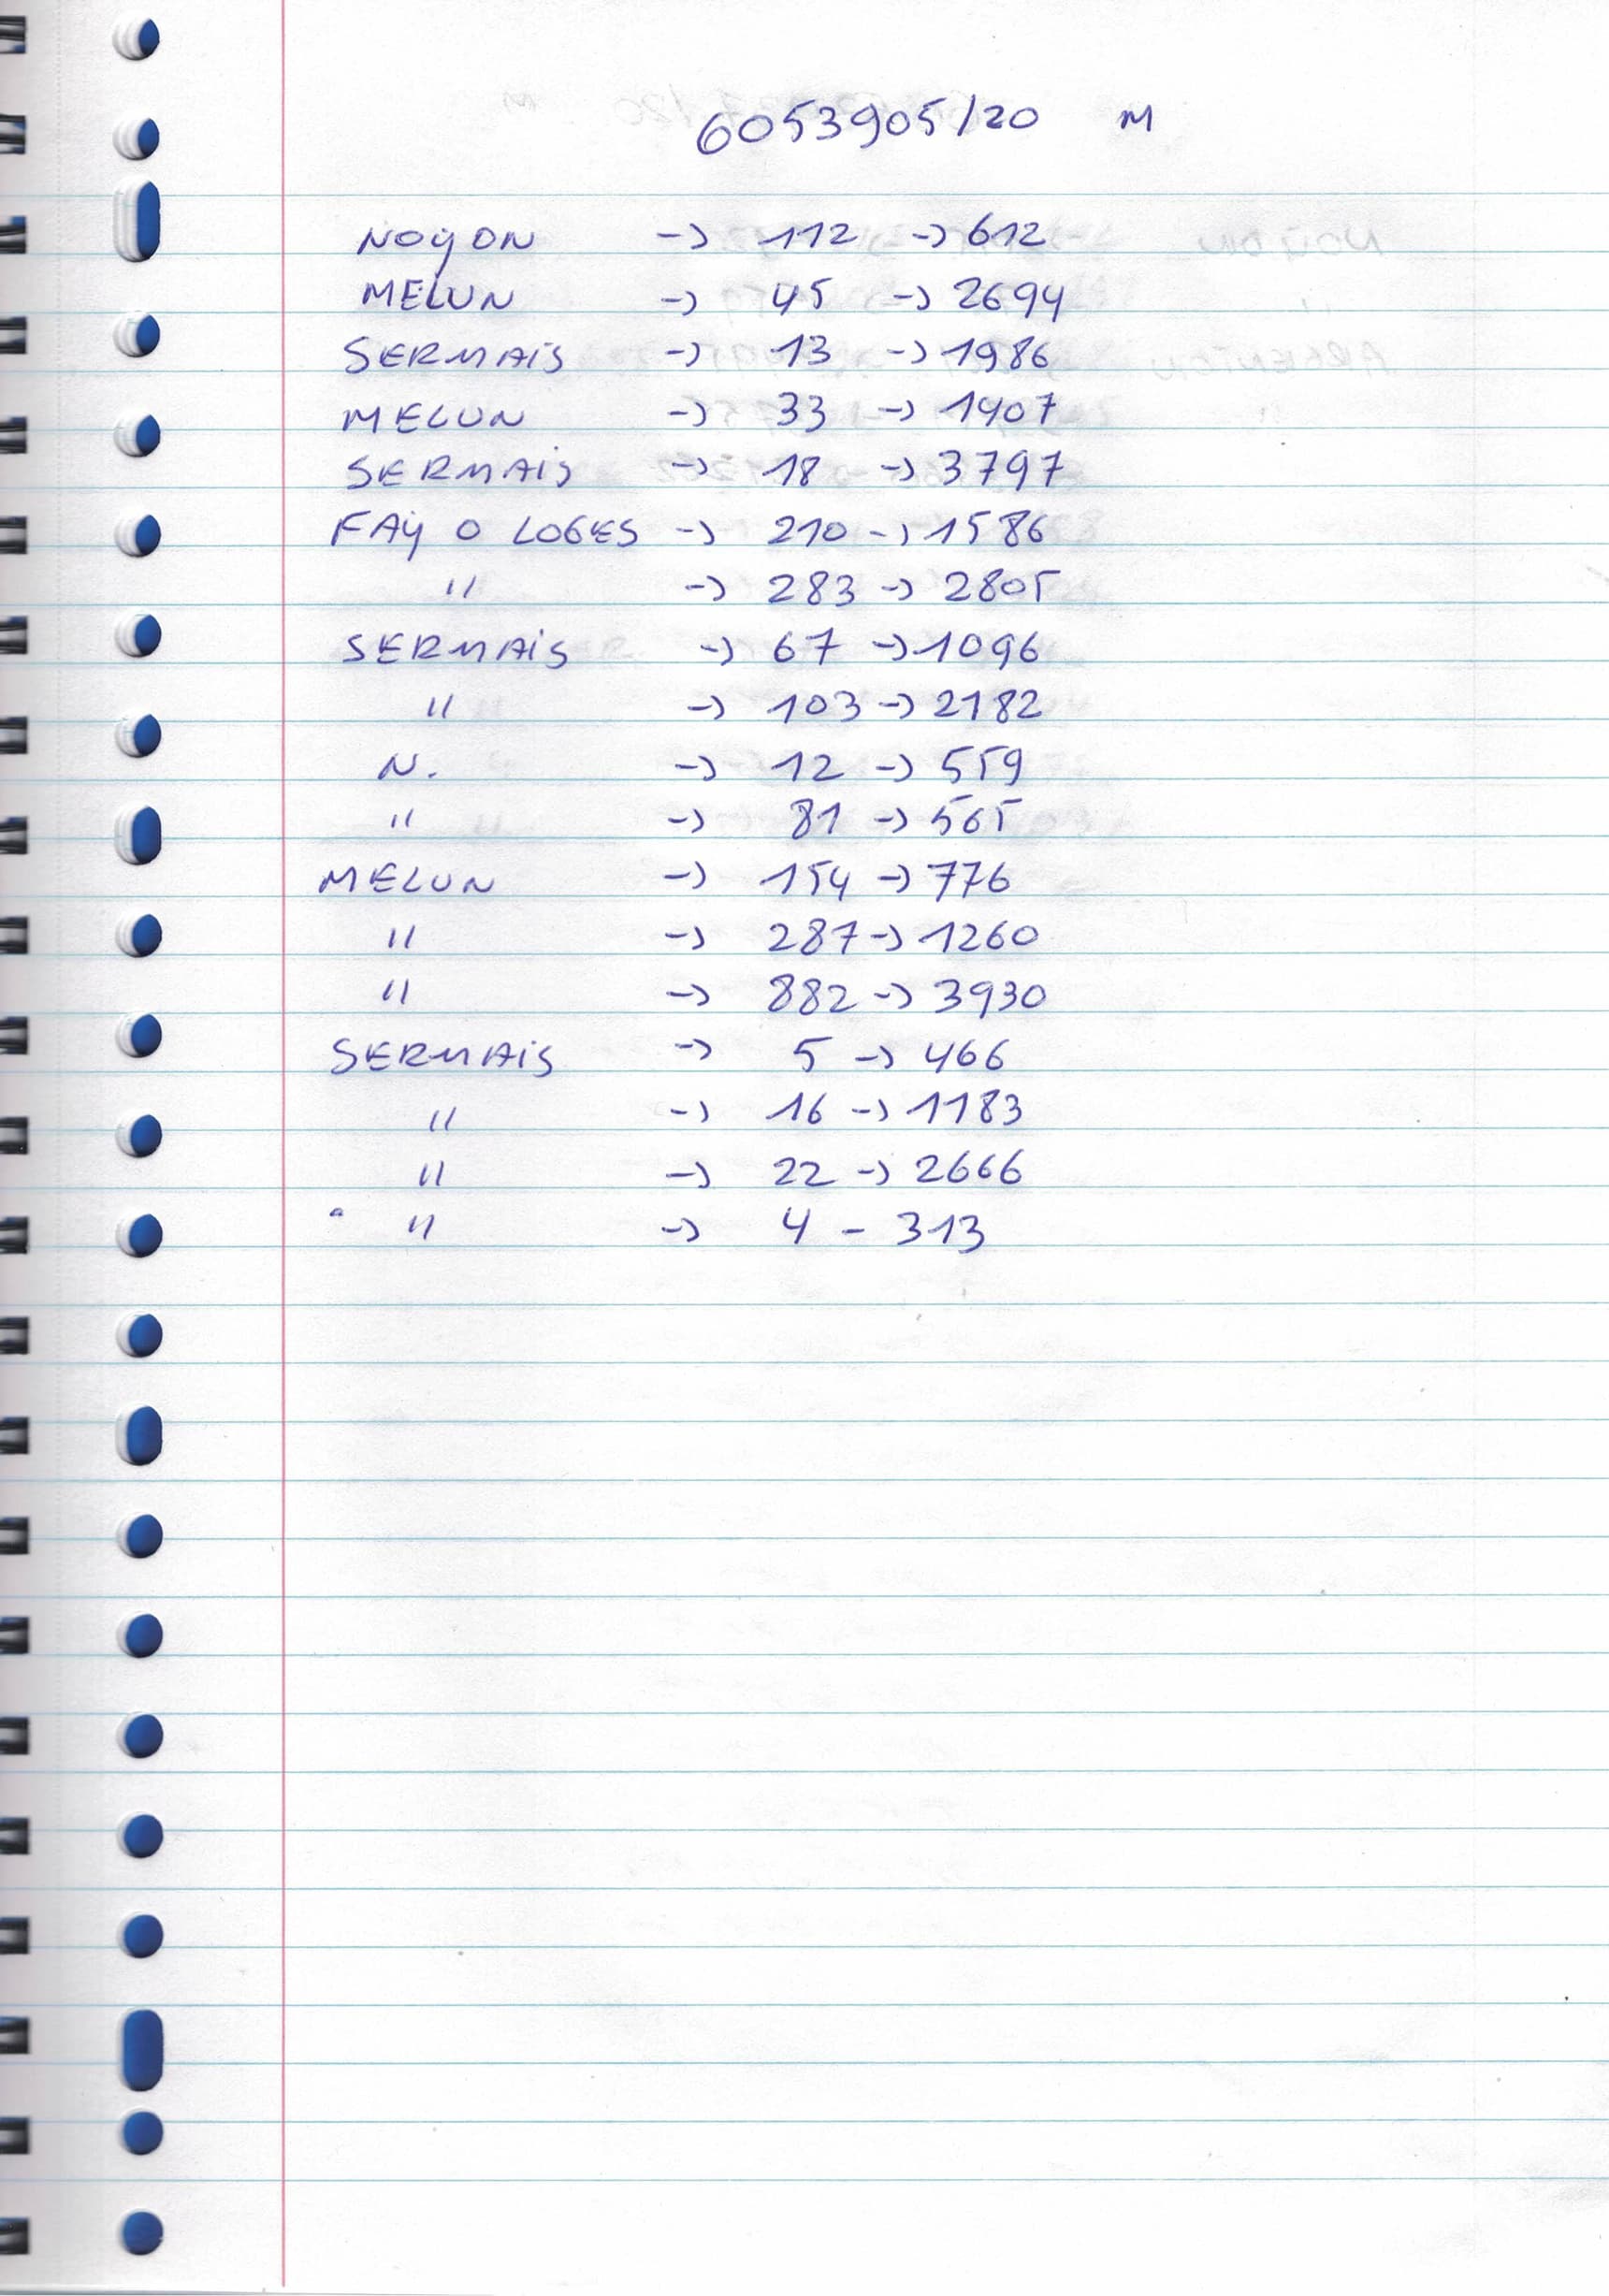 6053905/20 M
NOYON -> 112 -> 612
MELUN -> 45 -> 2694
SERMAIS -> 13 -> 1986
MELUN -> 33 -> 1407
SERMAIS -> 18 -> 3797
FAY O LOGES -> 210 -> 1586
" -> 283 -> 2805
SERMAIS -> 67 -> 1096
" -> 103 -> 2182
N. -> 12 -> 559
" -> 81 -> 565
MELUN -> 154 -> 776
" -> 287 -> 1260
" -> 882 -> 3930
SERMAIS -> 5 -> 466
" -> 16 -> 1183
" -> 22 -> 2666
" -> 4 - 313